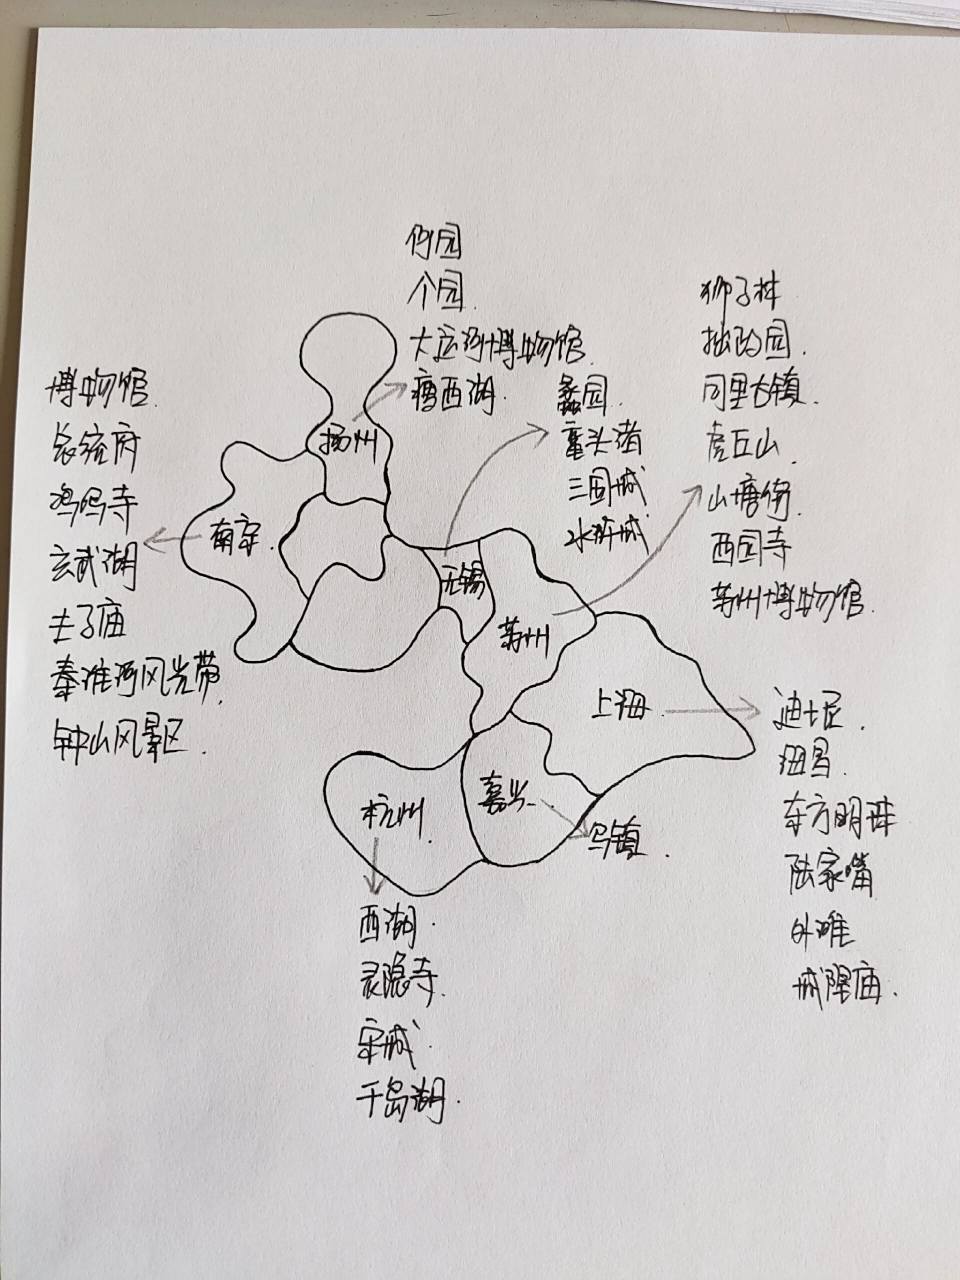 何园
个园
大运河博物馆
瘦西湖
扬州
博物馆
总统府
鸡鸣寺
玄武湖
夫子庙
秦淮河风光带
钟山风景区
南京
蠡园
鼋头渚
三国城
水浒城
无锡
狮子林
拙政园
同里古镇
虎丘山
山塘街
西园寺
苏州博物馆
苏州
上海
迪士尼
海昌
东方明珠
陆家嘴
外滩
城隍庙
嘉兴
乌镇
杭州
西湖
灵隐寺
宋城
千岛湖